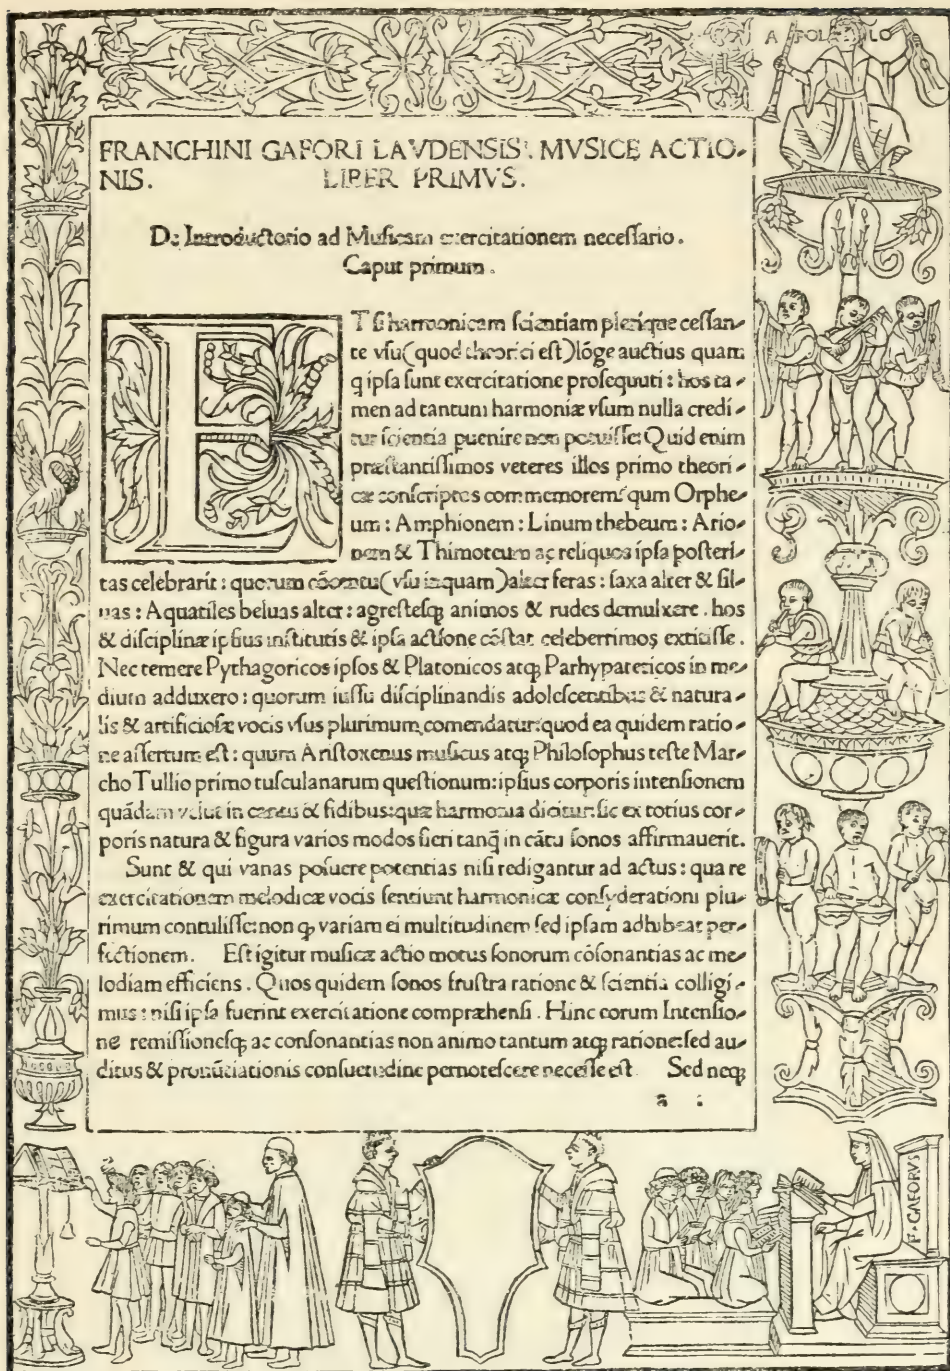 A POL LO
FRANCHINI GAFORI LAVDENSIS. MVSICE ACTIO-
NIS. LIBER PRIMVS.
De Introductorio ad Musicam exercitationem necessario.
Caput primum.
ET si harmonicam scientiam plerique cessan-
te vsu (quod theorici est) lōge auctius quam
q ipsa sunt exercitatione prosequuti: hos ta-
men ad tantum harmoniæ vsum nulla credi-
tur scientia puenire non potuisse: Quid enim
præstantissimos veteres illos primo theori-
cæ conscriptos commemorem: qum Orphe-
um: Amphionem: Linum thebeum: Ario-
nem & Thimoteum ac reliquos ipsa posteri-
tas celebrarit: quorum cōcentu (vsu inquam) alter feras: saxa alter & sil-
uas: Aquatiles beluas alter: agrestesq; animos & rudes demulxere. hos
& disciplinæ ipsius institutis & ipsa actione cōstat celeberrimos extitisse.
Nec temere Pythagoricos ipsos & Platonicos atq; Parhypatericos in me-
dium adduxero: quorum iussu disciplinandis adolescentibus & natura-
lis & artificiosæ vocis vsus plurimum comendatur: quod ea quidem ratio-
ne assertum est: quum Aristoxenus musicus atq; Philosophus teste Mar-
cho Tullio primo tusculanarum questionum: ipsius corporis intensionem
quādam velut in cantu & fidibus: quæ harmonia dicitur: sic ex totius cor-
poris natura & figura varios modos fieri tanq̄ in cātu sonos affirmauerit.
Sunt & qui vanas posuere potentias nisi redigantur ad actus: qua re
exercitationem melodicæ vocis sentiunt harmonicæ consyderationi plu-
rimum contulisse: non q; variam ei multitudinem sed ipsam adhibeat per-
fectionem. Est igitur musicæ actio motus sonorum cōsonantias ac me-
lodiam efficiens. Quos quidem sonos frustra ratione & scientia colligi-
mus: nisi ipsa fuerint exercitatione compræhensi. Hinc eorum Intensio-
ne remissionesq; ac consonantias non animo tantum atq; ratione: sed au-
ditus & pronūciationis consuetudine pernotescere necesse est. Sed neq;
a
F. GAFORVS